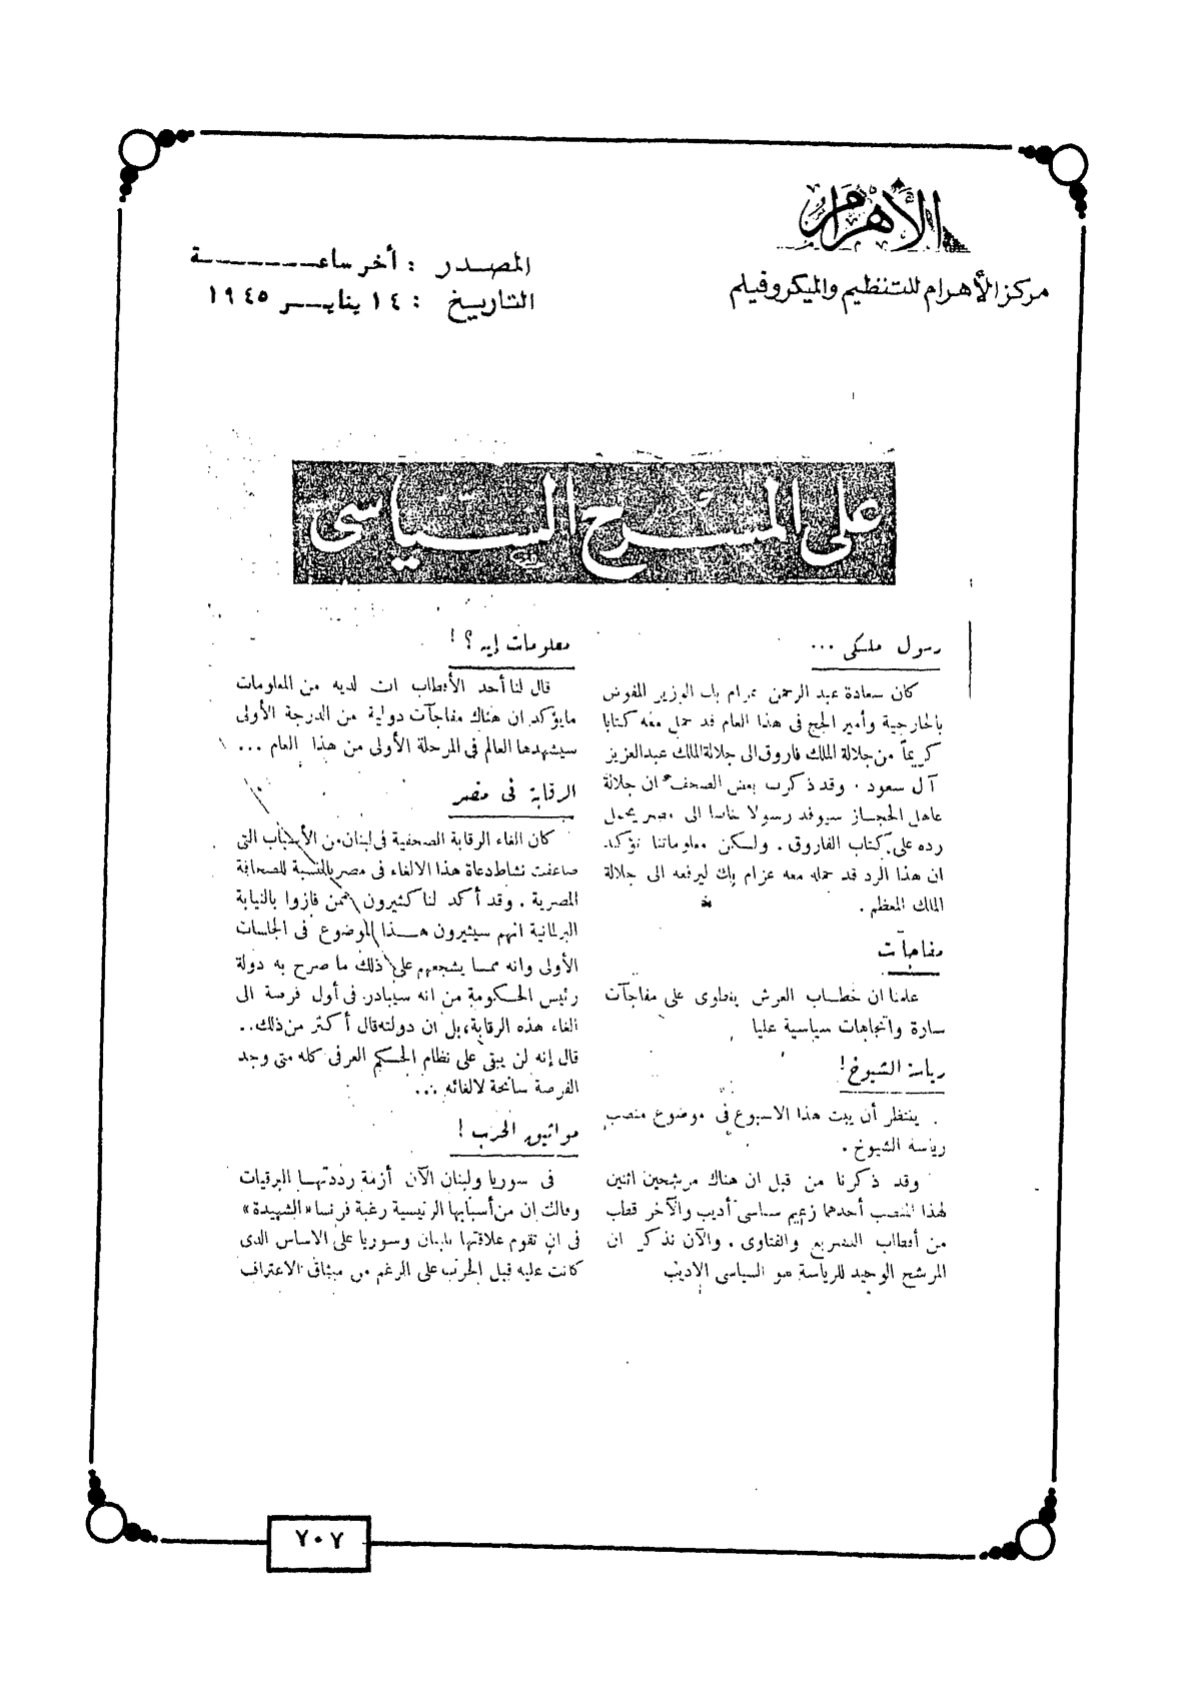 الأهرام
مركز الأهرام للتنظيم والميكروفيلم
المصدر : أخر ساعة
التاريخ : ١٤ يناير ١٩٤٥
على المسرح السياسى
رسول ملكى ...
كان سعادة عبد الرحمن عزام بك الوزير المفوض
بالخارجية وأمير الحج فى هذا العام قد حمل معه كتابا
كريماً من جلالة الملك فاروق الى جلالة الملك عبدالعزيز
آل سعود . وقد ذكرت بعض الصحف ان جلالة
عاهل الحجاز سيوفد رسولا خاصا الى مصر يحمل
رده على كتاب الفاروق . ولكن معلوماتنا تؤكد
ان هذا الرد قد حمله معه عزام بك ليرفعه الى جلالة
الملك المعظم .
مفاجآت
علمنا ان خطاب العرش ينطوى على مفاجآت
سارة واتجاهات سياسية عليا
رياسة الشيوخ !
ينتظر أن يبت هذا الاسبوع فى موضوع منصب
رياسة الشيوخ .
وقد ذكرنا من قبل ان هناك مرشحين اثنين
لهذا المنصب أحدهما زعيم سياسى أديب والآخر قطب
من أقطاب التشريع والفتاوى . والآن نذكر ان
المرشح الوحيد للرياسة هو السياسى الاديب
معلومات إيه ؟ !
قال لنا أحد الأقطاب ان لديه من المعلومات
مايؤكد ان هناك مفاجآت دولية من الدرجة الأولى
سيشهدها العالم فى المرحلة الأولى من هذا العام ...
الرقابة فى مصر
كان الغاء الرقابة الصحفية فى لبنان من الأسباب التى
ضاعفت نشاط دعاة هذا الالغاء فى مصر بالنسبة للصحافة
المصرية . وقد أكد لنا كثيرون ممن فازوا بالنيابة
البرلمانية انهم سيثيرون هذا الموضوع فى الجلسات
الأولى وانه مما يشجعهم على ذلك ما صرح به دولة
رئيس الحكومة من انه سيبادر فى أول فرصة الى
الغاء هذه الرقابة، بل ان دولته قال أكثر من ذلك ..
قال إنه لن يبقى على نظام الحكم العرفى كله متى وجد
الفرصة سانحة لالغائه ...
مواثيق الحرب !
فى سوريا ولبنان الآن أزمة رددتها البرقيات
وقالت إن من أسبابها الرئيسية رغبة فرنسا «الشهيدة»
فى ان تقوم علاقتها بلبنان وسوريا على الاساس الذى
كانت عليه قبل الحرب على الرغم من ميثاق الاعتراف
٧٠٧